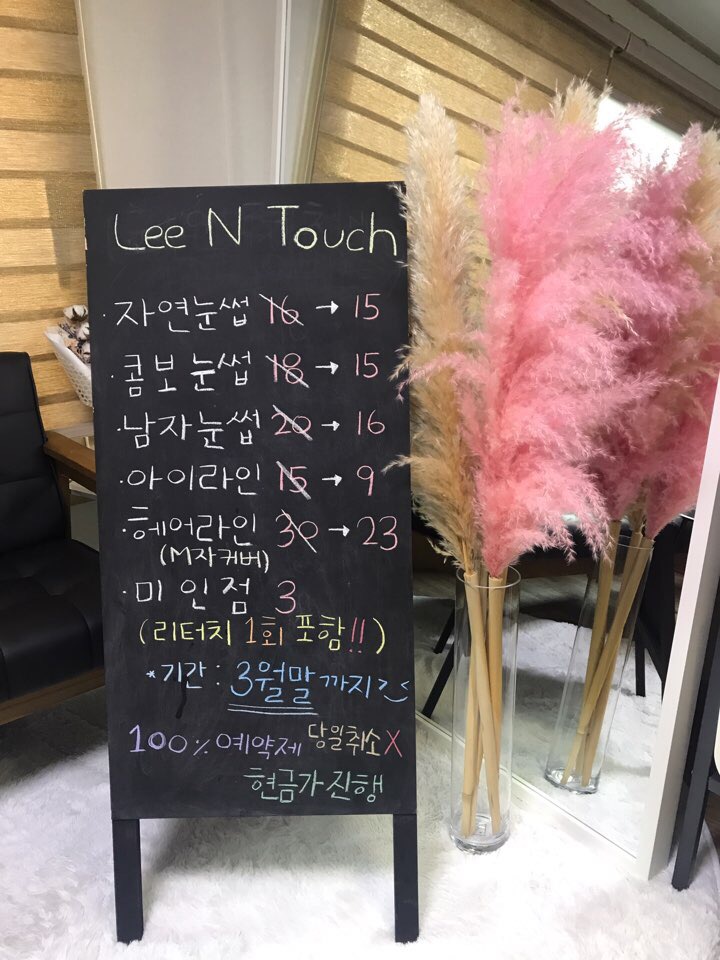 Lee N Touch
·자연눈썹 16 → 15
·콤보눈썹 18 → 15
·남자눈썹 20 → 16
·아이라인 15 → 9
·헤어라인 30 → 23
(M자커버)
·미인점 3
(리터치 1회 포함!!)
*기간 : 3월말까지
100% 예약제 당일취소X
현금가 진행